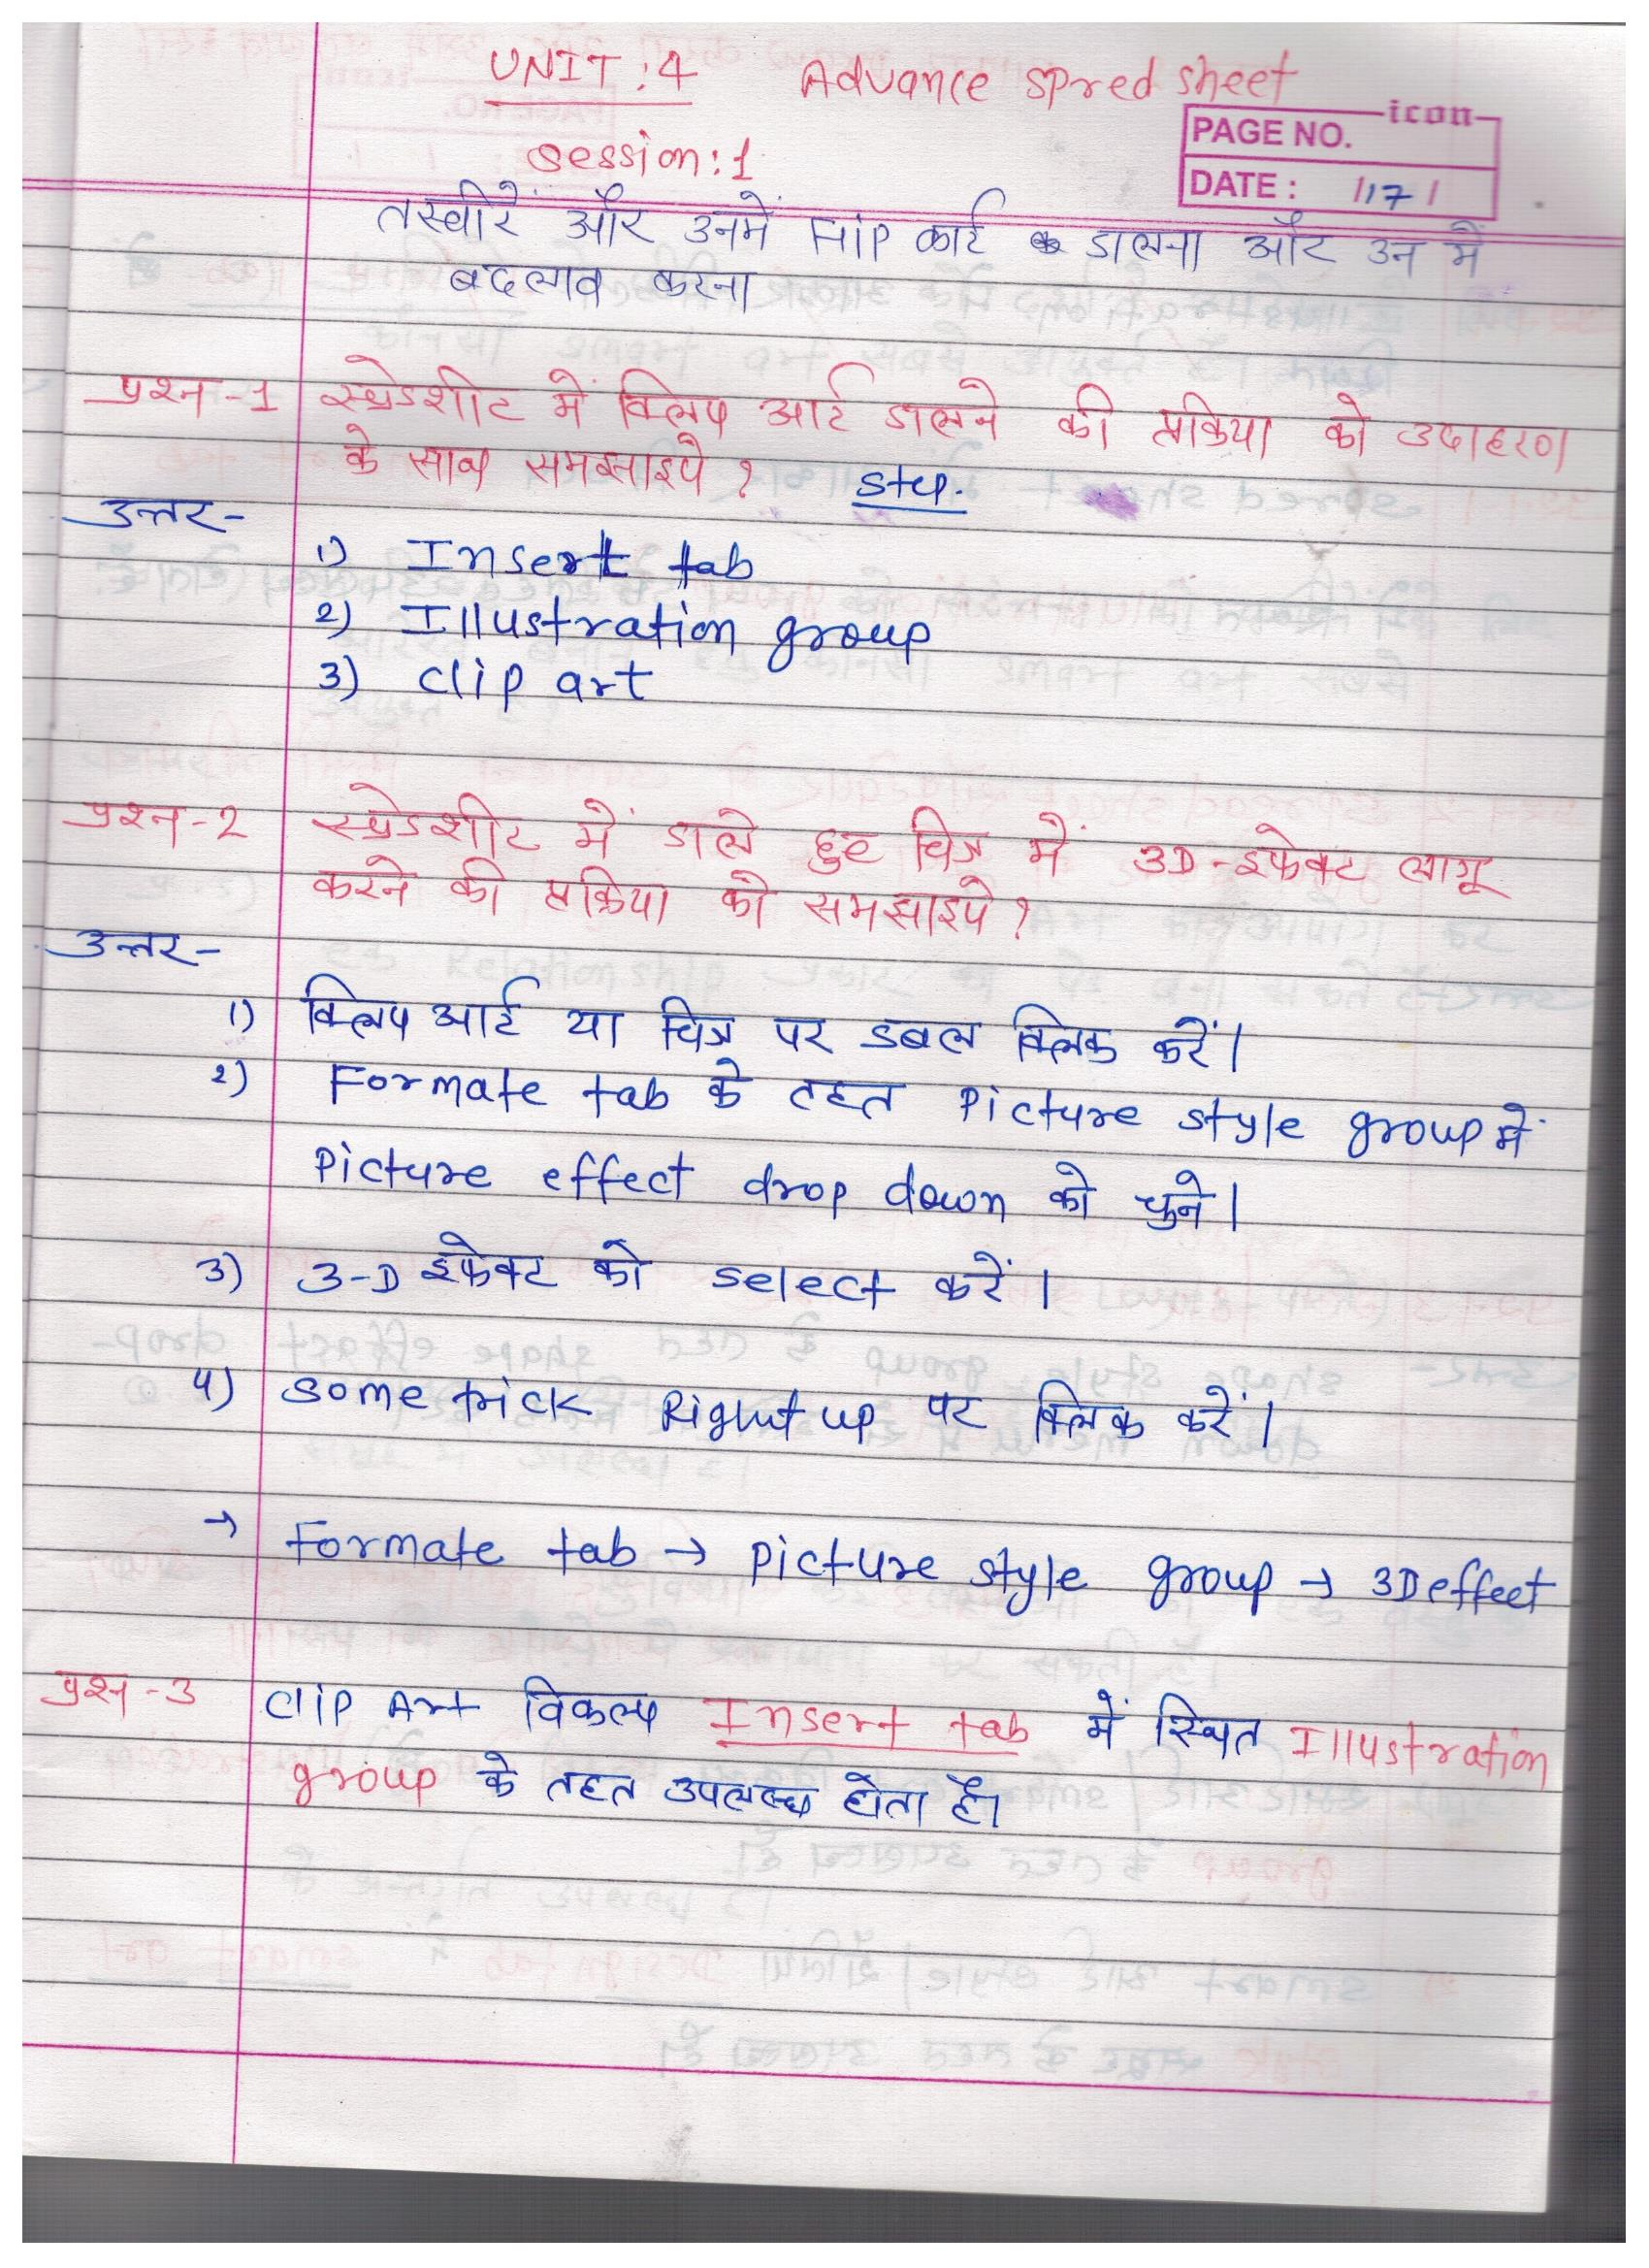 UNIT : 4 Advance spred sheet
icon
PAGE NO.
session : 1
DATE : / 17 /
तस्वीरें और उनमें Flip कार्ट डालना और उन में
बदलाव करना
प्रश्न -1 स्प्रेडशीट में क्लिप आर्ट डालने की प्रकिया को उदाहरण
के साथ समझाइये ? Step.
उत्तर-
1) Insert tab
2) Illustration group
3) clip art
प्रश्न -2 स्प्रेडशीट में डाले हुए चित्र में 3D-इफेक्ट लागू
करने की प्रक्रिया को समझाइये ?
उत्तर-
1) क्लिप आर्ट या चित्र पर डबल क्लिक करें।
2) Formate tab के तहत Picture style group में
Picture effect drop down को चुने।
3) 3-D इफेक्ट को select करें।
4) some trick Right up पर क्लिक करें।
→ Formate tab → picture style group → 3D effect
प्रश्न -3 Clip Art विकल्प Insert tab में स्थित Illustration
group के तहत उपलब्ध होता है।